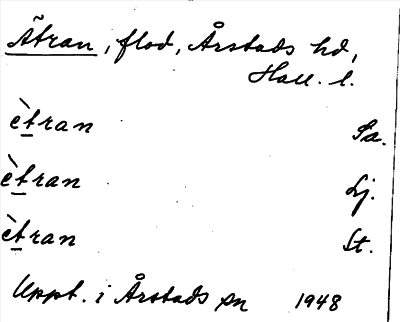 Ätran, flod, Årstads hd,
Hall. l.
ètran Sa.
ètran Lj.
ètran St.
Uppt. i Årstads sn 1948